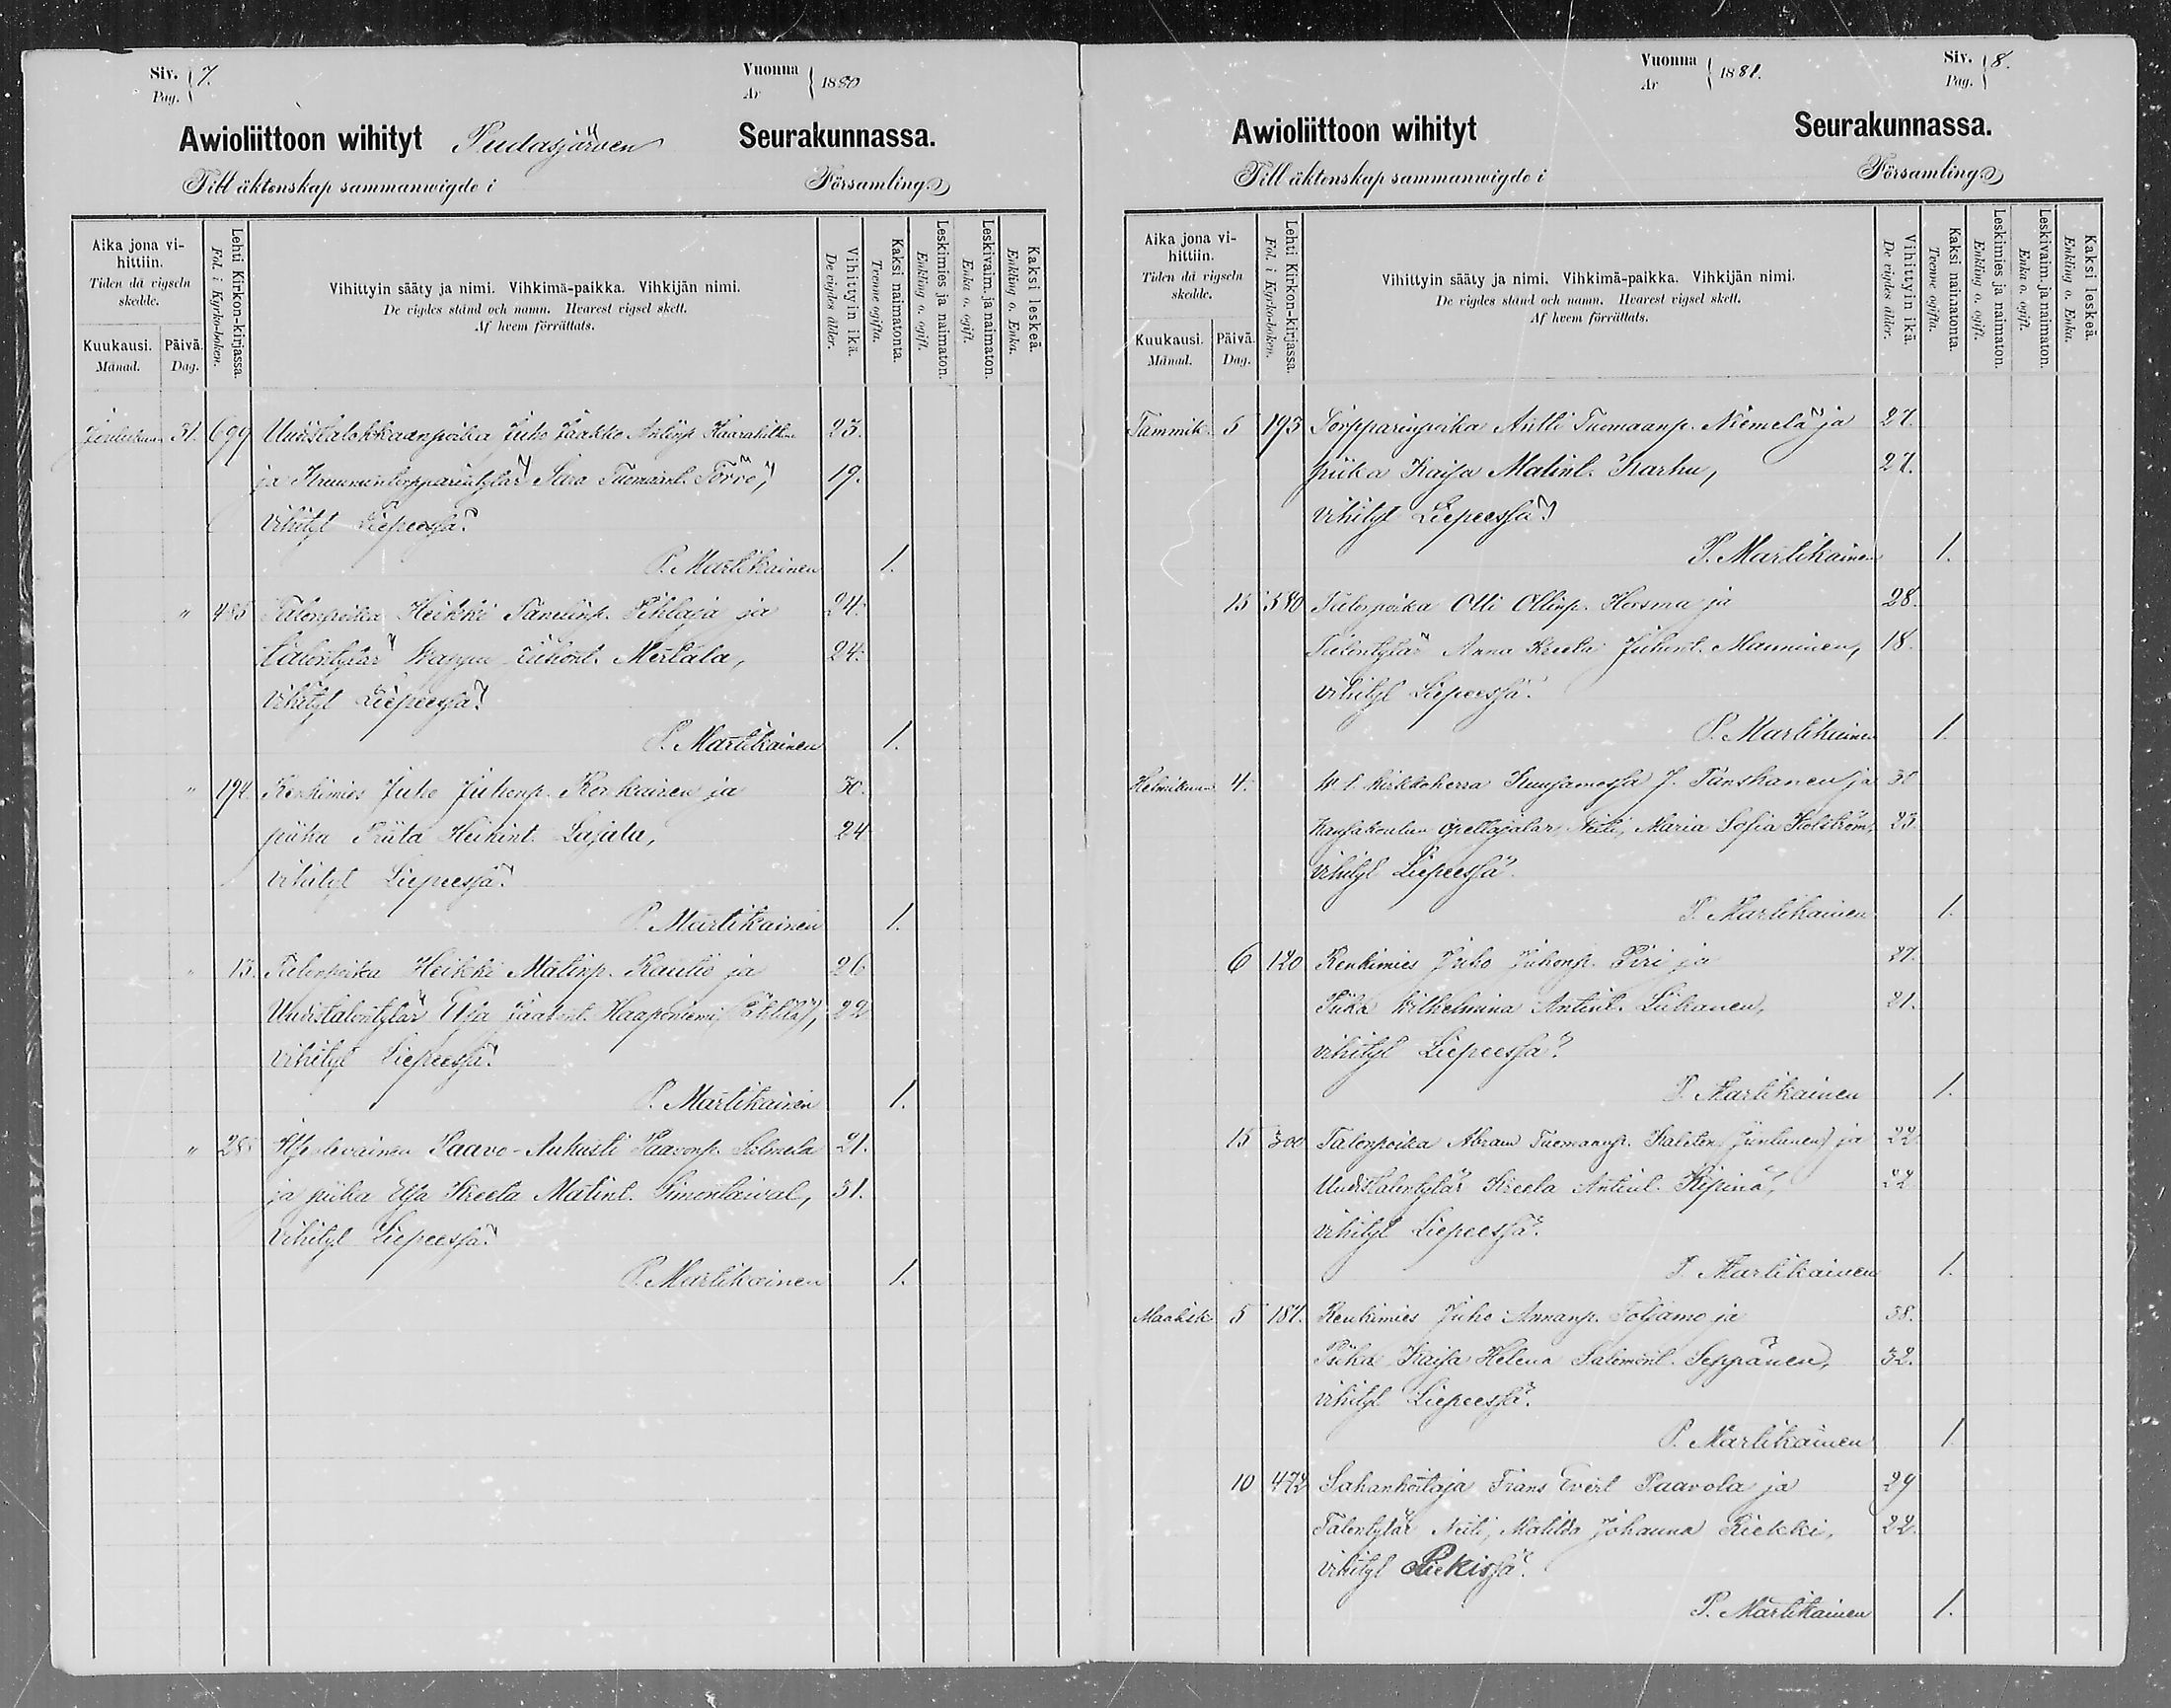 Siv. 7.
Pag.
Vuonna 1880
År
Awioliittoon wihityt Pudasjärven Seurakunnassa.
Till äktenskap sammanwigde i Församling.
Aika jona vihittiin.
Tiden då vigseln skedde.
Kuukausi. Månad.
Päivä. Dag.
Lehti Kirkon-kirjassa.
Fol. i Kyrko-boken.
Vihittyin sääty ja nimi. Vihkimä-paikka. Vihkijän nimi.
De vigdes stånd och namn. Hvarest vigsel skett.
Af hvem förrättats.
Vihittyin ikä.
De vigdes ålder.
Kaksi naimatonta.
Tvenne ogifta.
Leskimies ja naimaton.
Enkling o. ogift.
Leskivaim. ja naimaton.
Enka o. ogift.
Kaksi leskeä.
Enkling o. Enka.
Joulukuu 31. 699 Uudistalokkaanpoika Juho Jaakko Antinp. 23.
ja Kruununtorpparintytär Sara Tuomaint. Törrö, 19.
vihityt Liepeessä.
P. Martikainen 1.
" 485 Talonpoika Heikki Tanelinp. Pihlaja ja 24.
talontytär Wappu Juhont. Mertala, 24.
vihityt Liepeessä.
P. Martikainen 1.
" 194. Renkimies Juho Juhonp. Korkainen ja 30.
piika Priita Heikint. Lajata, 24
vihityt Liepeessä.
P. Martikainen 1.
" 13. Talonpoika Heikki Matinp. Rautio ja 26
Uudistalontytär Elsa Jaakont. Haaponiemi 22
vihityt Liepeessä.
P. Martikainen 1.
" 285 Itsellevainen Paavo-Aukusti Paavonp. 21.
ja piika Elsa Kreeta Matint. Simontaival, 31.
vihityt Liepeessä.
P. Martikainen 1.
Vuonna 1881.
År
Siv. 8.
Pag.
Awioliittoon wihityt Seurakunnassa.
Till äktenskap sammanwigde i Församling.
Aika jona vihittiin.
Tiden då vigseln skedde.
Kuukausi. Månad.
Päivä. Dag.
Lehti Kirkon-kirjassa.
Fol. i Kyrko-boken.
Vihittyin sääty ja nimi. Vihkimä-paikka. Vihkijän nimi.
De vigdes stånd och namn. Hvarest vigsel skett.
Af hvem förrättats.
Vihittyin ikä.
De vigdes ålder.
Kaksi naimatonta.
Tvenne ogifta.
Leskimies ja naimaton.
Enkling o. ogift.
Leskivaim. ja naimaton.
Enka o. ogift.
Kaksi leskeä.
Enkling o. Enka.
Tammik. 5 193 Torpparinpoika Antti Tuomaanp. Niemelä ja 27.
piika Kaisa Matint. Karhu, 27.
vihityt Liepeessä.
P. Martikainen 1.
15 580 Talonpoika Olli Ollinp. Hosma ja 28.
Talontytär Anna Kreeta Juhont. Manninen, 18.
vihityt Liepeessä.
P. Martikainen 1.
Helmikuu 4. W. t. kirkkoherra Kuusamossa J. Tanskanen ja 31
Kansakoulun opettajatar, Neiti, Maria Sofia Holström, 23.
vihityt Liepeessä.
P. Martikainen 1.
6 120 Renkimies Juho Juhonp. Piri ja 27.
Piika Wilhelmina Antint. Liikanen, 21.
vihityt Liepeessä.
P. Martikainen 1.
15 300 Talonpoika Abram Tuomaanp. ja 22.
Uudistalontytär Kreeta Antint. Kipinä, 22
vihityt Liepeessä.
P. Martikainen 1.
Maalisk. 5 187. Renkimies Juho Annanp. Toljamo ja 38.
Piika Kaisa Helena Salomont. Seppänen, 32.
vihityt Liepeessä.
P. Martikainen 1
10 472 Sahanhoitaja Frans Evert Paavola ja 29
Talontytär Neiti, Matilda Johanna Riekki, 22.
vihityt Riekissä.
P. Martikainen 1.